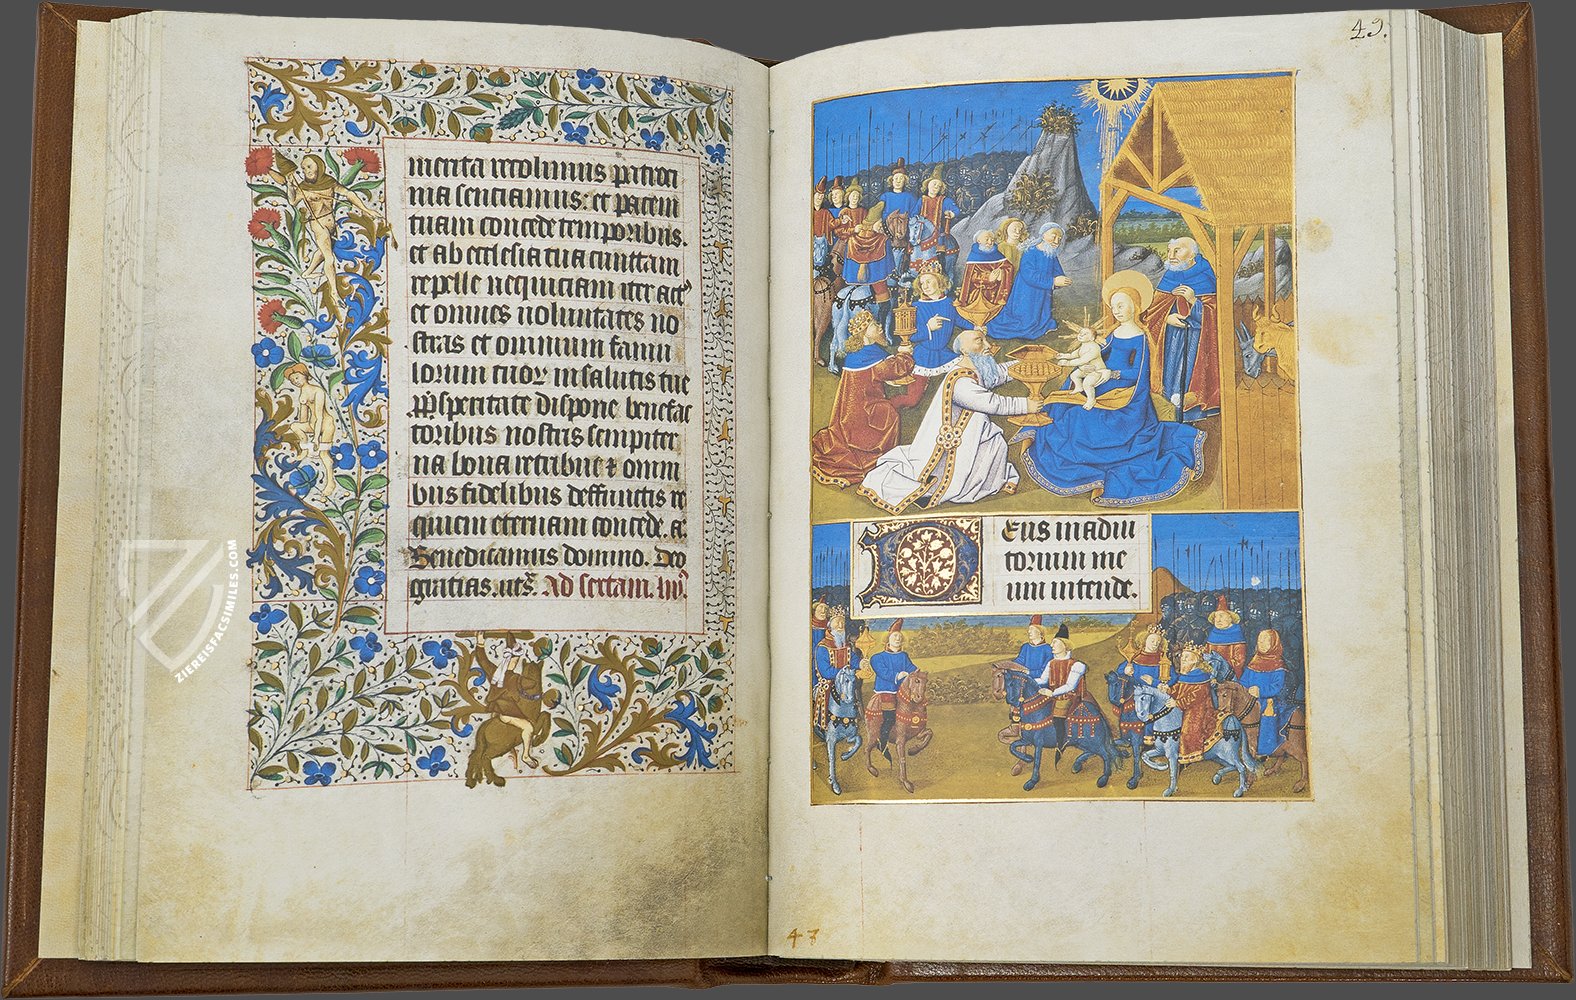 merita recolimus patroci
nia sentiamus: et pacem
tuam concede temporibus.
et ab ecclesia tua cunctam
repelle nequiciam iter act᷒
et omnes voluntates no
stras et omnium famu
lorum tuoꝝ in salutis tue
ꝓsperitate dispone benefac
toribus nostris sempiter
na bona retribue ⁊ omni
bus fidelibus deffunctis re
quiem eternam concede. 
Benedicamus domino. Deo
gratias. Ad sextam.
ZIEREISFACSIMILES.COM
49.
DEus in adiu
torium me
um intende.
47